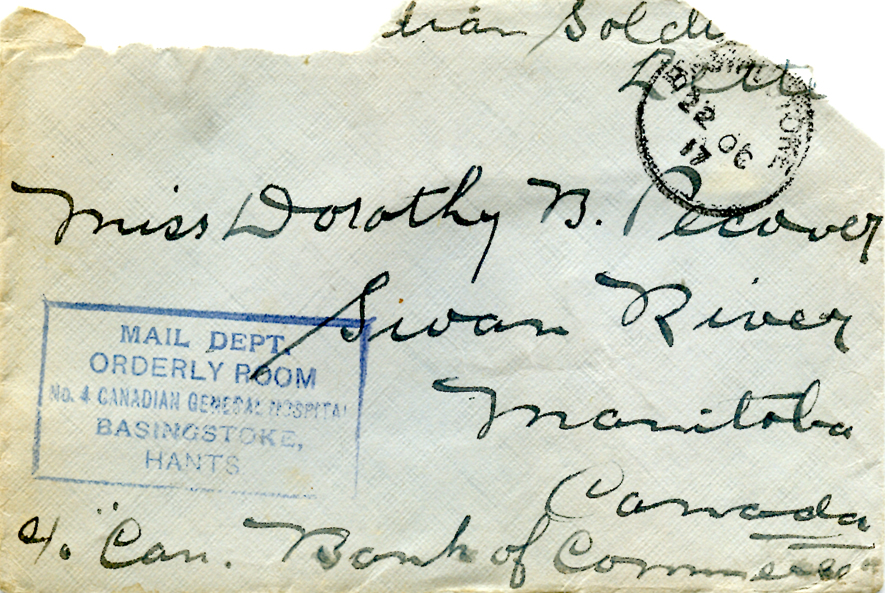 ian Soldi
Lette
BASINGSTOKE
22 OC
17
Miss Dorothy B. Pecover
Swan River
Manitoba
Canada
c/. "Can. Bank of Commerce"
MAIL DEPT.
ORDERLY ROOM
No. 4 CANADIAN GENERAL HOSPITAL
BASINGSTOKE,
HANTS